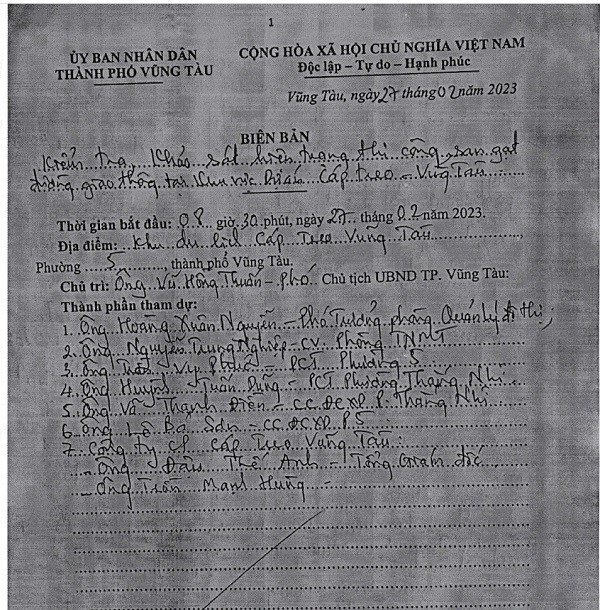 1
ỦY BAN NHÂN DÂN
THÀNH PHỐ VŨNG TÀU
CỘNG HÒA XÃ HỘI CHỦ NGHĨA VIỆT NAM
Độc lập – Tự do – Hạnh phúc
Vũng Tàu, ngày 27 tháng 02 năm 2023
BIÊN BẢN
Kiểm tra, khảo sát hiện trạng thi công san gạt
đường giao thông tại khu vực Dự án Cáp treo - Vũng Tàu
Thời gian bắt đầu: 08 giờ 30 phút, ngày 27 tháng 02 năm 2023.
Địa điểm: Khu du lịch Cáp Treo Vũng Tàu,
Phường 5, thành phố Vũng Tàu.
Chủ trì: Ông Vũ Hồng Thuấn - Phó Chủ tịch UBND TP. Vũng Tàu:
Thành phần tham dự:
1. Ông Hoàng Xuân Nguyễn - Phó Trưởng phòng Quản lý đô thị;
2. Ông Nguyễn Trung Nghiệp - CV Phòng TNMT
3. Ông Trần - PCT Phường 5
4. Ông Huỳnh Tuấn Dũng - PCT Phường Thắng Nhì
5. Ông Võ Thanh Điền - CC ĐCXD P. Thắng Nhì
6. Ông Lê Bá Sơn - CC ĐCXD P.5
7. Công ty CP Cáp Treo Vũng Tàu:
- Ông Đậu Thế Anh - Tổng Giám đốc
- Ông Trần Mạnh Hùng -